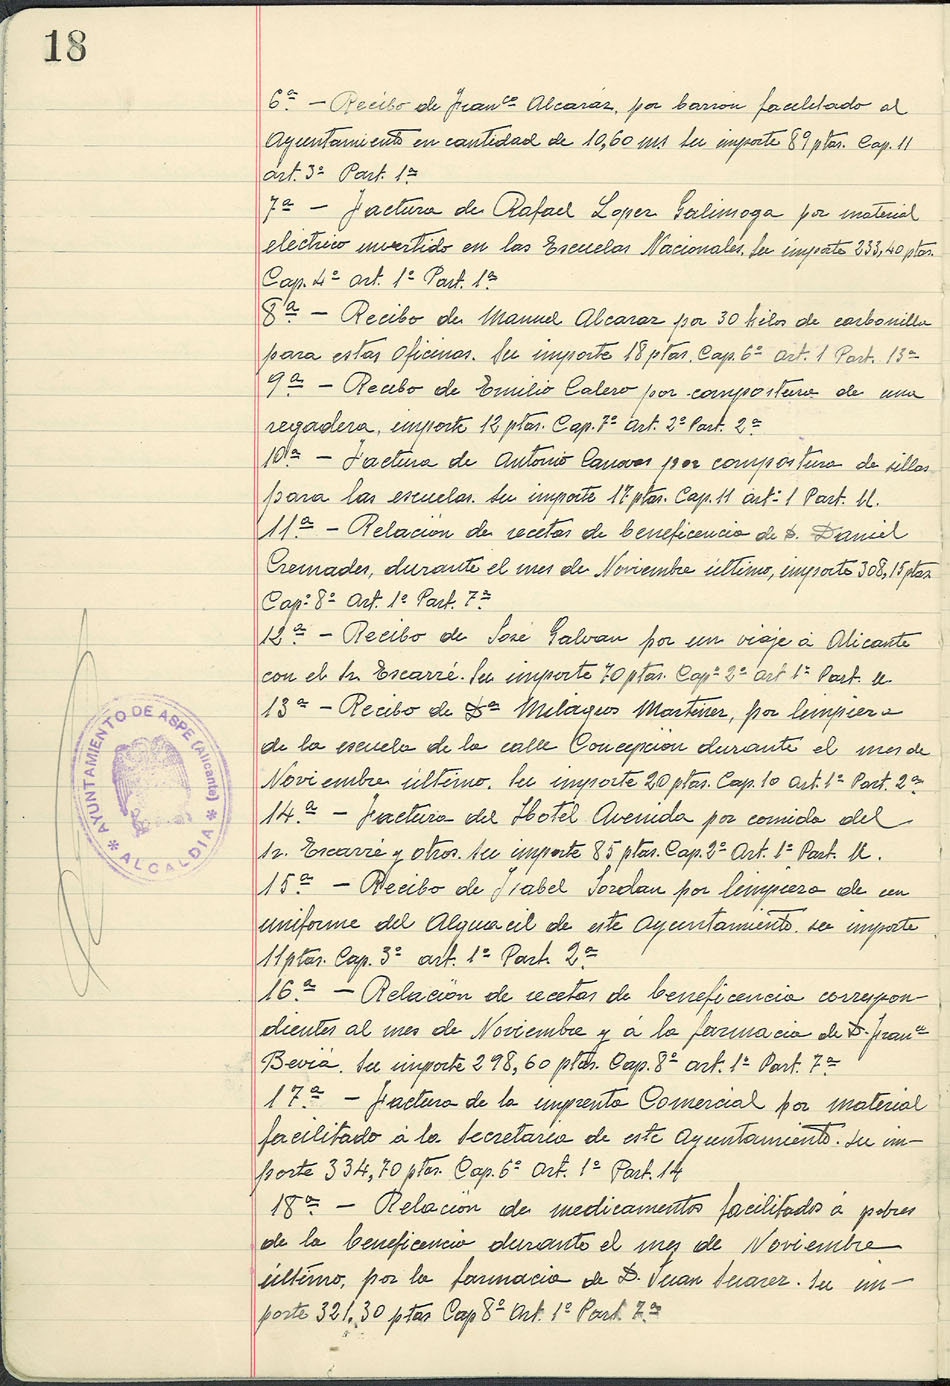 18
6ª - Recibo de Franco Alcaráz, por barron facilitado al
Ayuntamiento en cantidad de 10,60 ms. Su importe 89 ptas. Cap. 11
art. 3º Part. 1ª
7ª - Factura de Rafael Lopez Galinsoga por material
eléctrico invertido en las Escuelas Nacionales. Su importe 233,40 ptas.
Cap. 4º art. 1º Part. 1ª
8ª - Recibo de Manuel Alcaraz por 30 kilos de carbonilla
para estas oficinas. Su importe 18 ptas. Cap. 6º art. 1 Part. 13ª
9ª - Recibo de Emilio Calero por compostura de una
regadera, importe 12 ptas. Cap. 7º Art. 2º Part. 2ª
10ª - Factura de Antonio Canovas por compostura de sillas
para las escuelas. Su importe 17 ptas. Cap. 11 artº 1 Part. U.
11ª - Relación de recetas de beneficencia de D. Daniel
Cremades, durante el mes de Noviembre último, importe 308,15 ptas
Capº 8º Art. 1º Part. 7ª
12ª - Recibo de José Galvan por un viaje á Alicante
con el Sr. Escarré. Su importe 70 ptas. Capº 2º art 1º Part. U.
13ª - Recibo de Dª Milagros Martinez, por limpieza
de la escuela de la calle Concepción durante el mes de
Noviembre último. Su importe 20 ptas. Cap. 10 Art. 1º Part. 2ª
14ª - Factura del Hotel Avenida por comida del
Sr. Escarré y otros. Su importe 85 ptas. Cap. 2º Art. 1º Part. U.
15ª - Recibo de Isabel Jordan por limpieza de un
uniforme del Alguacil de este Ayuntamiento. su importe
11 ptas. Cap. 3º art. 1º Part. 2ª
16ª - Relación de recetas de beneficencia correspon-
dientes al mes de Noviembre y á la farmacia de D. Franco
Beviá. Su importe 298,60 ptas. Cap. 8º art. 1º Part. 7ª
17ª - Factura de la imprenta Comercial por material
facilitado á la Secretaria de este Ayuntamiento. Su im-
porte 334,70 ptas. Cap. 6º Art. 1º Part. 14
18ª - Relación de medicamentos facilitados á pobres
de la beneficencia durante el mes de Noviembre
último, por la farmacia de D. Juan Suarez. Su im-
porte 321,30 ptas Cap 8º Art. 1º Part 7ª
AYUNTAMIENTO DE ASPE (Alicante)
* ALCALDIA *